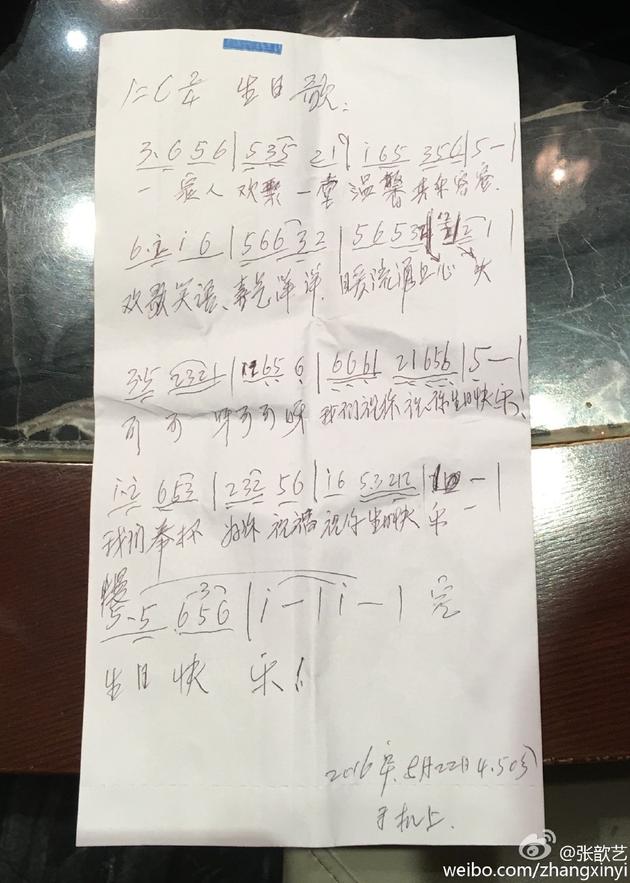 1=C 2/4 生日歌:
3·6 5 6 | 5 35 21 | i 65 356 | 5 - |
一家人欢聚一堂温馨
6·2 i 6 | 5 6 6 3 2 | 5 6 5 3
欢歌笑语、喜气洋洋.暖流涌上心头
35 2321 | 65 6 | 6661 21656 | 5 - |
可可呀可可呀我们祝你祝你生日快乐!
i·2 653 | 232 56 | i6 53212 | - |
我们举杯 为你祝福祝你生日快乐
慢
5·5 656 | i - | i - | 完
生日快乐!
2016年 8月22日4.50分
手机上.
@张歆艺
weibo.com/zhangxinyi